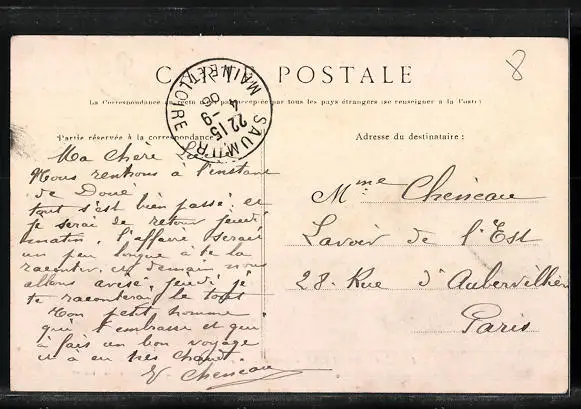 CARTE POSTALE
8
La Correspondance au recto n'est pas acceptée par tous les pays étrangers (se renseigner à la Poste)
Partie réservée à la correspondance
Adresse du destinataire :
SAUMUR
22 15
4 -9
06
MAINE-ET-LOIRE
Ma Chère
Nous rentrons à l'instant
de Doué
tout s'est bien passé et
je serai de retour jeudi
matin. l'affaire serait
un peu longue à te la
raconter, demain nous
allons jeudi je
te raconterai le tout
Ton petit homme
qui t'embrasse et qui
a fait un bon voyage
il a eu très chaud.
E Cheneau
Mme Cheneau
Lavoir de l'Est
28. Rue d'Aubervilliers
Paris